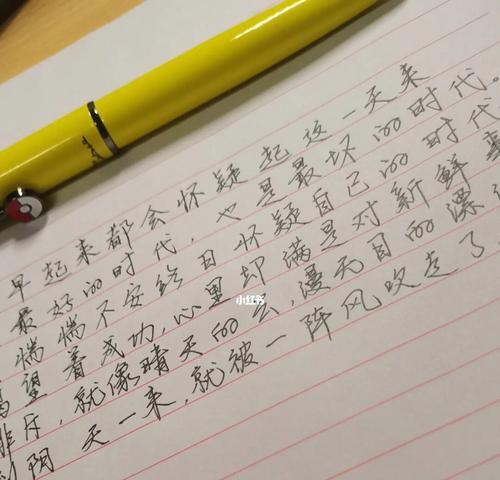 早起来都会怀疑起这一天来
最好的时代，也是最坏的时代。
惴惴不安终日怀疑自己的时代
渴望着成功，心里却满是对新鲜事
排斥，就像晴天的云，漫无目的漂
到阴天一来，就被一阵风吹走了
小红书